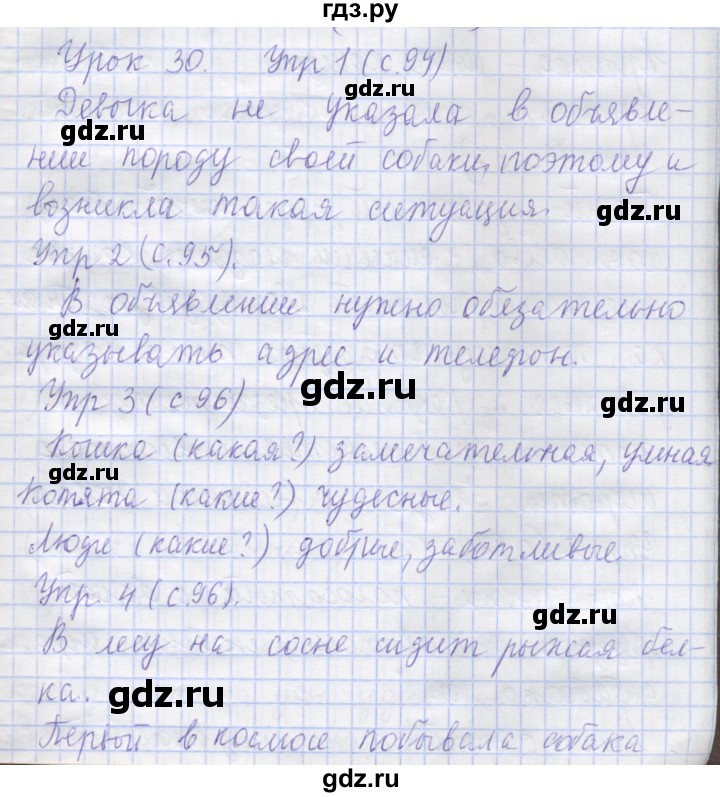 гдз.ру
Урок 30. Упр 1 (с.94)
gdz.ru
Девочка не указала в объявле-
gdz.ru
gdz.ru
нии породу своей собаки, поэтому и
возникла такая ситуация.
gdz.ru
Упр 2 (с.95).
В объявлении нужно обязательно
gdz.ru
указывать адрес и телефон.
gdz.ru
gdz.ru
Упр 3 (с 96)
Кошка (какая?) замечательная, умная
gdz.ru
Котята (какие?) чудесные.
Люди (какие?) добрые, заботливые
Упр. 4 (с.96).
gdz.ru
В лесу на сосне сидит рыжая бел-
ка.
gdz.ru
Первой в космосе побывала собака
gdz.ru